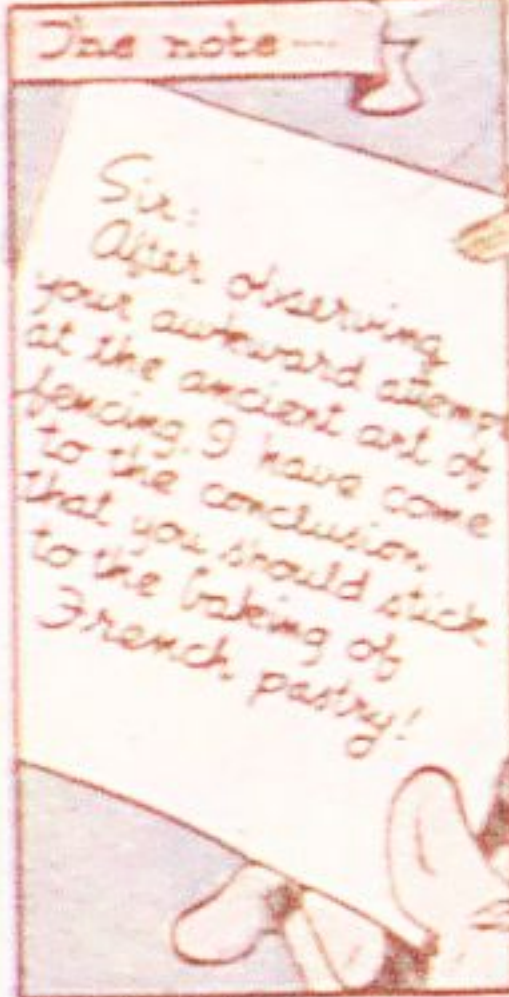 The note---
Sir:
After observing
your awkward attempt
at the ancient art of
fencing. I have come
to the conclusion
that you should stick
to the baking of
French pastry!